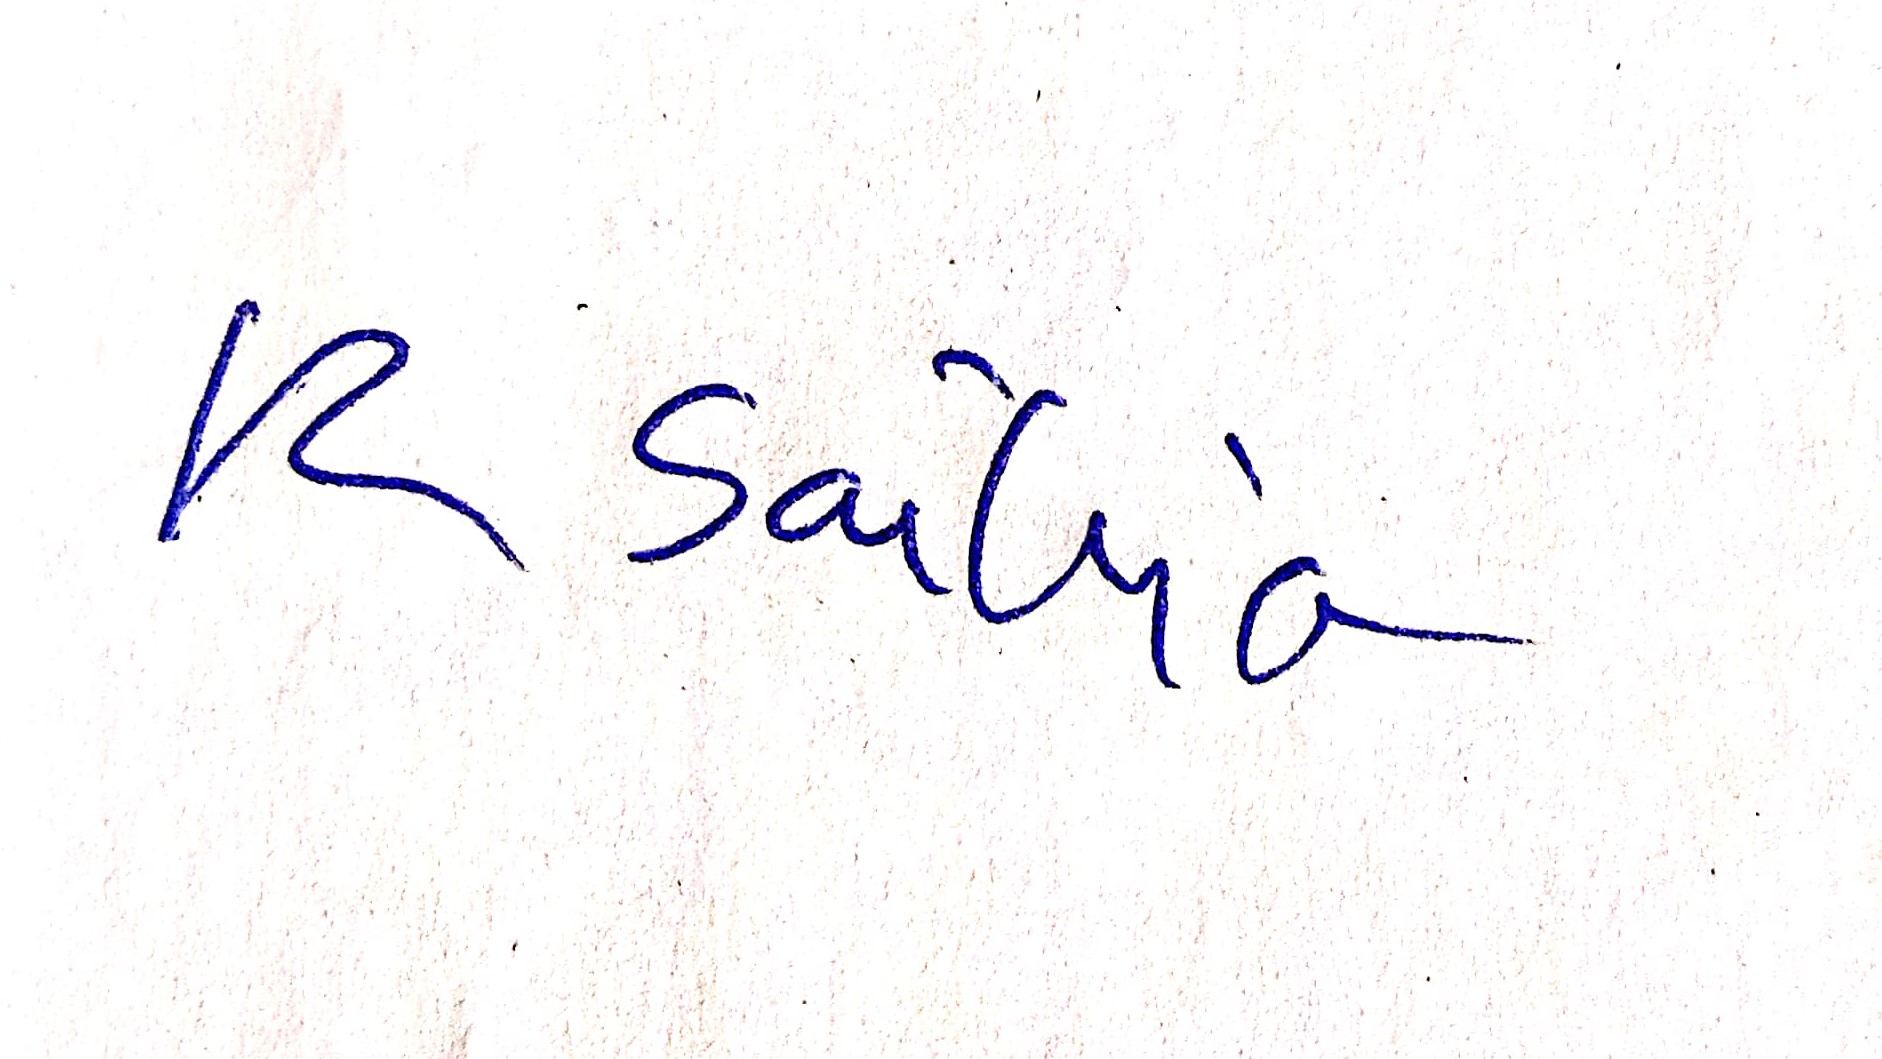 R Saikia